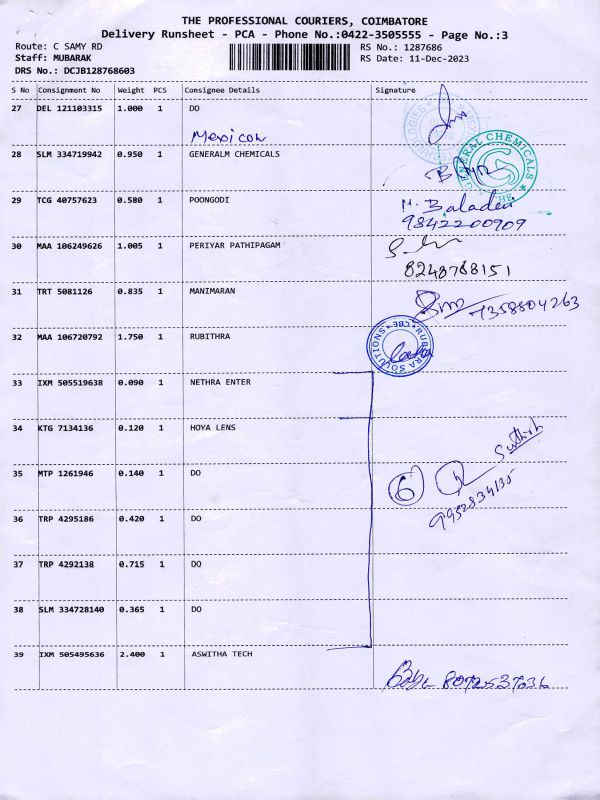 THE PROFESSIONAL COURIERS, COIMBATORE
Delivery Runsheet - PCA - Phone No.:0422-3505555 - Page No.:3
Route: C SAMY RD RS No.: 1287686
Staff: MUBARAK RS Date: 11-Dec-2023
DRS No.: DCJB128768603
S No Consignment No Weight PCS Consignee Details Signature
27 DEL 121103315 1.000 1 DO
Mexicon
28 SLM 334719942 0.950 1 GENERALM CHEMICALS
GENERAL CHEMICALS
CBE
29 TCG 40757623 0.580 1 POONGODI
M. Baladevi
9842200909
30 MAA 106249626 1.005 1 PERIYAR PATHIPAGAM
8248788151
31 TRT 5081126 0.835 1 MANIMARAN
7358804263
32 MAA 106720792 1.750 1 RUBITHRA
SOLUTIONS CBE
33 IXM 505519638 0.090 1 NETHRA ENTER
34 KTG 7134136 0.120 1 HOYA LENS
Sathish
35 MTP 1261946 0.140 1 DO
6
9952834135
36 TRP 4295186 0.420 1 DO
37 TRP 4292138 0.715 1 DO
38 SLM 334728140 0.365 1 DO
39 IXM 505495636 2.400 1 ASWITHA TECH
Babu 8072537036